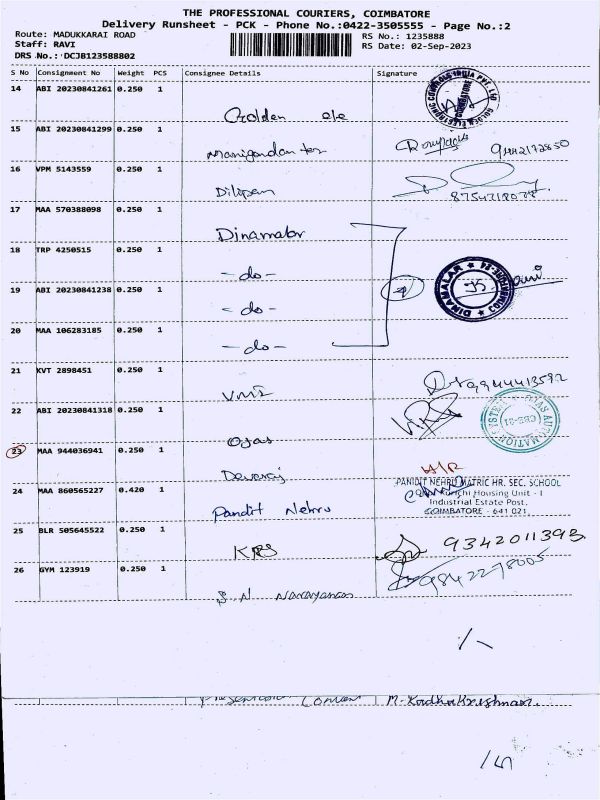 THE PROFESSIONAL COURIERS, COIMBATORE
Delivery Runsheet - PCK - Phone No.:0422-3505555 - Page No.:2
Route: MADUKKARAI ROAD RS No.: 1235888
Staff: RAVI RS Date: 02-Sep-2023
DRS No.: DCJB123588802
S No Consignment No Weight PCS Consignee Details Signature
14 ABI 20230841261 0.250 1
Golden ele
15 ABI 20230841299 0.250 1
Manigandan tex 9442172850
16 VPM 5143559 0.250 1
Dilipan 8754718078
17 MAA 570388098 0.250 1
Dinamalar
18 TRP 4250515 0.250 1
- do -
19 ABI 20230841238 0.250 1
- do -
DINAMALAR
20 MAA 106283185 0.250 1
- do -
21 KVT 2898451 0.250 1
9944413592
22 ABI 20230841318 0.250 1
Ojas
CBE-21
23 MAA 944036941 0.250 1
Devaraj
24 MAA 860565227 0.420 1
PANDIT NEHRU MATRIC HR. SEC. SCHOOL
Housing Unit - I
Industrial Estate Post,
COIMBATORE - 641 021.
Pandit Nehru
25 BLR 505645522 0.250 1
KRS 9342011393
26 GYM 123919 0.250 1
9842278005
S. N Narayanan
M. Radhakrishnan